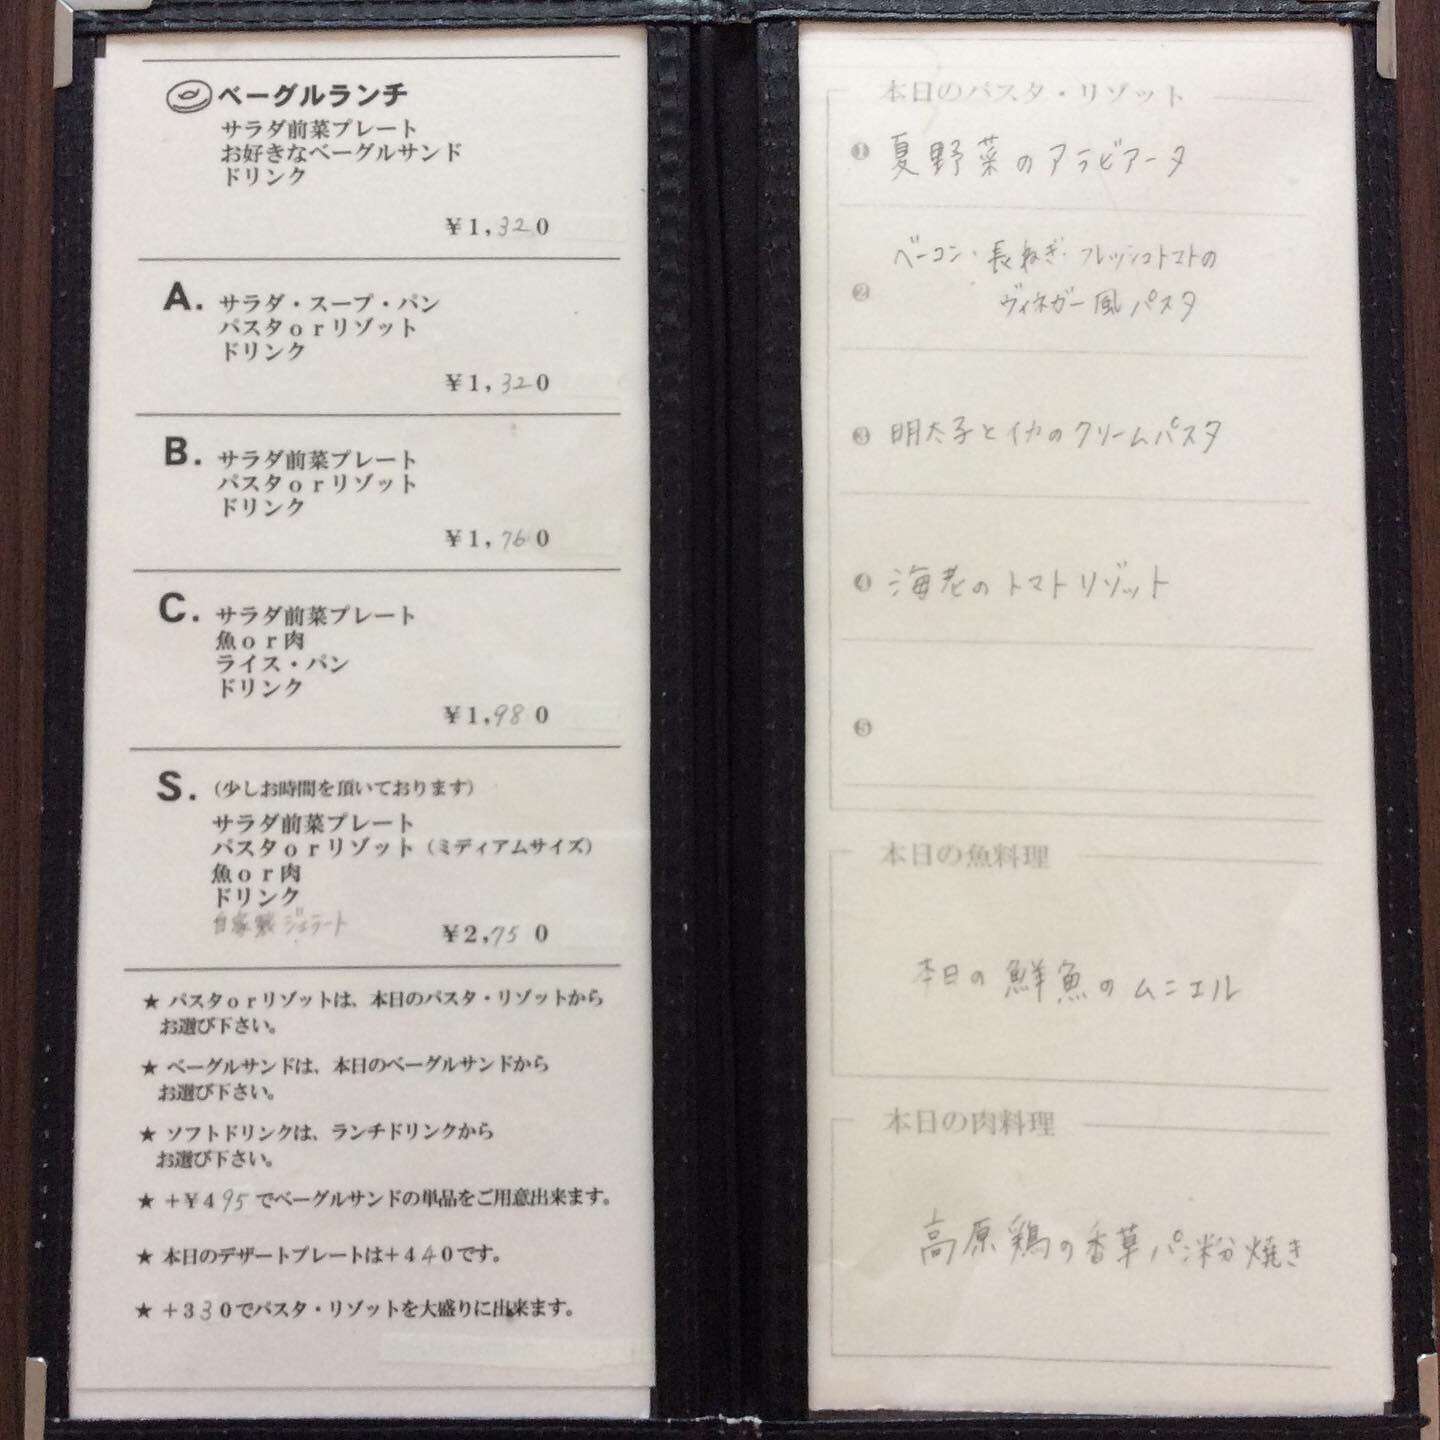 ベーグルランチ
サラダ前菜プレート
お好きなベーグルサンド
ドリンク
¥1,320
A. サラダ・スープ・パン
パスタorリゾット
ドリンク
¥1,320
B. サラダ前菜プレート
パスタorリゾット
ドリンク
¥1,760
C. サラダ前菜プレート
魚or肉
ライス・パン
ドリンク
¥1,980
S. (少しお時間を頂いております)
サラダ前菜プレート
パスタorリゾット(ミディアムサイズ)
魚or肉
ドリンク
自家製ジェラート
¥2,750
★ パスタorリゾットは、本日のパスタ・リゾットから
お選び下さい。
★ ベーグルサンドは、本日のベーグルサンドから
お選び下さい。
★ ソフトドリンクは、ランチドリンクから
お選び下さい。
★ +¥495でベーグルサンドの単品をご用意出来ます。
★ 本日のデザートプレートは+440です。
★ +330でパスタ・リゾットを大盛りに出来ます。
本日のパスタ・リゾット
❶ 夏野菜のアラビアータ
ベーコン・長ねぎ・フレッシュトマトの
❷ ヴィネガー風パスタ
❸ 明太子とイカのクリームパスタ
❹ 海老のトマトリゾット
❺
本日の魚料理
本日の鮮魚のムニエル
本日の肉料理
高原鶏の香草パン粉焼き